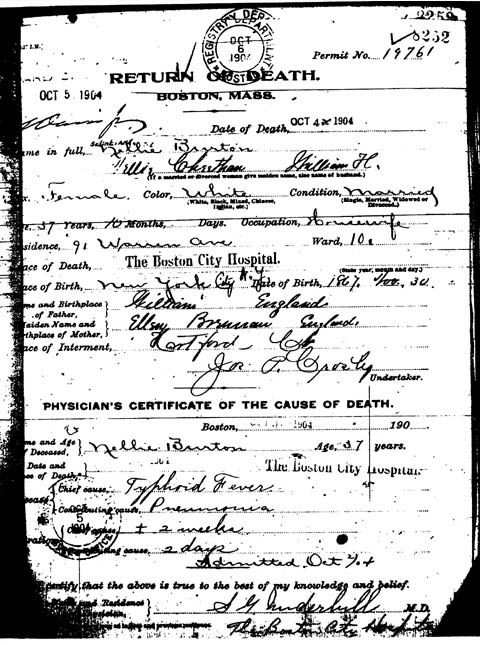 REGISTRY DEPARTMENT
OCT
6
1904
BOSTON
8252
Permit No. 19761
RETURN OF DEATH.
OCT 5 1904
BOSTON, MASS.
Date of Death, OCT 4 1904
me in full, Nellie Burton
Chrethan William H.
(If a married or divorced woman give maiden name, also name of husband.)
Female Color, White Condition, Married
(White, Black, Mixed, Chinese, Indian, etc.) (Single, Married, Widowed or Divorced.)
37 Years, 10 Months, Days. Occupation, Housewife
sidence, 91 Warren Ave Ward, 10
ace of Death, The Boston City Hospital.
(State year, month and day.)
ace of Birth, New York City N.Y. Date of Birth, 1867 Nov. 30
me and Birthplace of Father, William England
aiden Name and thplace of Mother, Ellen Brennan England
ace of Interment, Hartford Ct
Jos P. Crosby
Undertaker.
PHYSICIAN'S CERTIFICATE OF THE CAUSE OF DEATH.
Boston, 1904 190
me and Age of Deceased, Nellie Burton Age, 37 years.
Date and ce of Death, The Boston City Hospital.
Chief cause, Typhoid Fever
Contributing cause, Pneumonia
Chief cause, ± 2 weeks
cause, 2 days
Admitted Oct
certify that the above is true to the best of my knowledge and belief.
and Residence S G Underhill M.D.
The Boston City Hospital